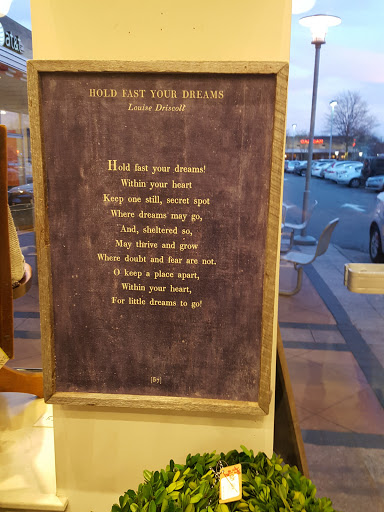 HOLD FAST YOUR DREAMS
Louise Driscoll
Hold fast your dreams!
Within your heart
Keep one still, secret spot
Where dreams may go,
And, sheltered so,
May thrive and grow
Where doubt and fear are not.
O keep a place apart,
Within your heart,
For little dreams to go!
[87]